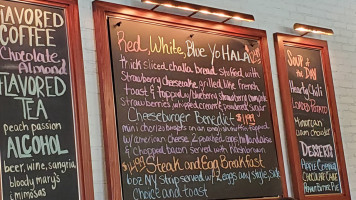 FLAVORED
COFFEE
Chocolate
Almond
FLAVORED
TEA
peach passion
ALCOHOL
beer, wine, sangria
bloody mary's
mimosas
Red, White, Blue Yo HALA
thick sliced challa bread stuffed with
Strawberry cheesecake, grilled like french
toast & topped w/ blueberry
strawberries whipped cream & powdered sugar
Cheeseburger Benedict $14.99
mini chorizo burgers on an english muffin topped
w/ american cheese 2 poached eggs, hollandaise
& chopped bacon served with
$14.99 Steak and Egg Breakfast
6oz NY strip served w/ 2 eggs any style, side
choice and toast
SOUP of
the DAY
Hearty Chili
Loaded POTATO
Moroccan
DESSERTS
Apple Crumble
Chocolate Cake
Peanut Butter Pie